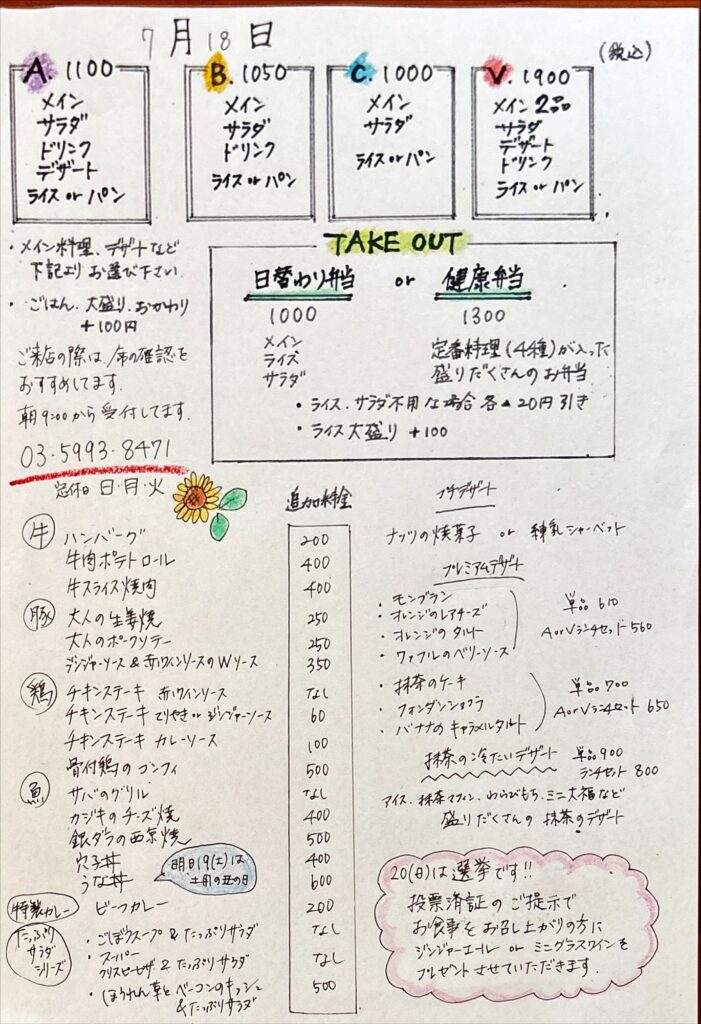 7月18日
(税込)
A. 1100
メイン
サラダ
ドリンク
デザート
ライス or パン
B. 1050
メイン
サラダ
ドリンク
ライス or パン
C. 1000
メイン
サラダ
ライス or パン
V. 1900
メイン 2品
サラダ
デザート
ドリンク
ライス or パン
・メイン料理、デザートなど
下記よりお選び下さい.
・ごはん、大盛り、おかわり
+100円
ご来店の際は、席の確認を
おすすめしてます.
朝9:00から受付してます.
03-5993-8471
定休日 日・月・火
TAKE OUT
日替わり弁当 or 健康弁当
1000
メイン
ライス
サラダ
1300
定番料理(4種)が入った
盛りだくさんのお弁当
・ライス、サラダ不用な場合 各▲20円引き
・ライス大盛り +100
追加料金
牛
ハンバーグ 200
牛肉ポテトロール 400
牛スライス焼肉 400
豚
大人の生姜焼 250
大人のポークソテー 250
ジンジャーソース & 赤ワインソースのWソース 350
鶏
チキンステーキ 赤ワインソース なし
チキンステーキ てりやき or ジンジャーソース 60
チキンステーキ カレーソース 100
骨付鶏のコンフィ 500
魚
サバのグリル なし
カジキのチーズ焼 400
銀ダラの西京焼 500
穴子丼 400
うな丼 600
明日19(土)は
土用の丑の日
特製カレー
ビーフカレー 200
たっぷり
サラダ
シリーズ
・ごぼうスープ & たっぷりサラダ なし
・スーパー
クリスピーピザ & たっぷりサラダ なし
・ほうれん草とベーコンのキッシュ
& たっぷりサラダ 500
プチデザート
ナッツの焼菓子 or 練乳シャーベット
プレミアムデザート
・モンブラン
・オレンジのレアチーズ
・オレンジのタルト
・ワッフルのベリーソース
単品 610
A or Vランチセット 560
・抹茶のケーキ
・フォンダンショコラ
・バナナのキャラメルタルト
単品 700
A or Vランチセット 650
抹茶の冷たいデザート
単品 900
ランチセット 800
アイス、抹茶マフィン、わらびもち、ミニ大福など
盛りだくさんの抹茶のデザート
20(日)は選挙です!!
投票済証のご提示で
お食事をお召し上がりの方に
ジンジャーエール or ミニグラスワインを
プレゼントさせていただきます.